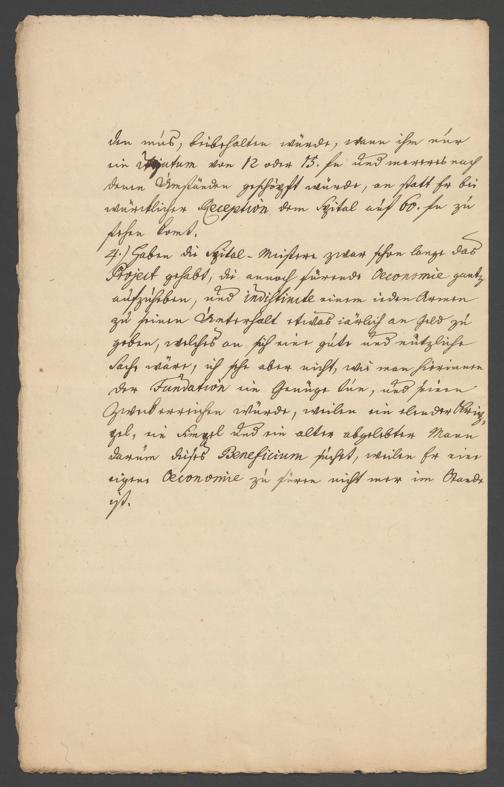 den mus, beibehalten würde, wann ihm nur
ein von 12 oder 15. fn und mereres nach
denen Umständen geschöpft würde, an statt Er bei
würcklicher Reception dem Spital auf 60. fn zu
stehen komt.
4.) Haben die Spital-Meistere zwar schon lange das
Project gehabt, die annoch fürende Oeconomie gantz
aufzuheben, und indistincte einem ieden Armen
zu seinem Unterhalt etwas iärlich an Geld zu
geben, welches an sich eine gute und nützliche
Sache wäre, ich sehe aber nicht, wie man hierinnen
der Fundation ein Genüge tun, und seinen
Zweck erreichen würde, weilen ein elender
ein und ein alter abgelebter Mann
darum dieses Beneficium suchet, weilen Er eine
eigene Oeconomie zu füren nicht mer im Stande
ist.